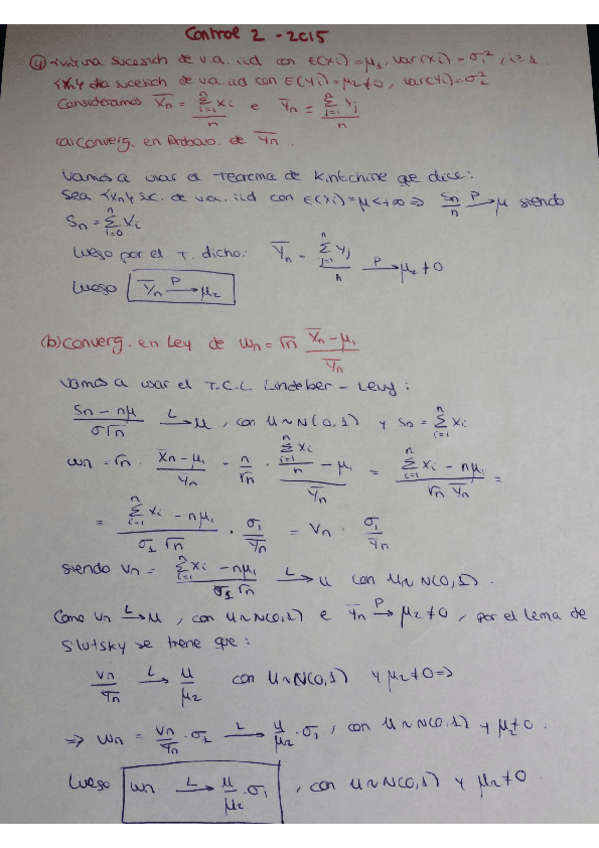 Control 2 - 2015
④ {Xi} una sucesión de v.a. iid con E(Xi)=μ₁, Var(Xi)=σ₁², i≥1.
{Xi} otra sucesión de v.a. iid con E(Yi)=μ₂≠0, Var(Yi)=σ₂²
Consideramos X̄n = Σᵢ₌₁ⁿ Xi / n e Ȳn = Σᵢ₌₁ⁿ Yj / n
(a) Converg. en Probab. de Ȳn.
Vamos a usar el Teorema de Kintchine que dice:
Sea {Xn} s.c. de v.a. iid con E(Xi)=μ<+∞ ⇒ Sn/n →ᴾ μ siendo
Sn = Σᵢ₌₀ⁿ Xi
Luego por el T. dicho: Ȳn = Σⱼ₌₁ⁿ Yj / n →ᴾ μ₂≠0
Luego Ȳn →ᴾ μ₂
(b) Converg. en Ley de Wn = √n (X̄n - μ₁)/Ȳn
Vamos a usar el T.C.L Lindeber - Levy:
(Sn - nμ)/(σ√n) →ᴸ u, con u~N(0,1) y Sn = Σᵢ₌₁ⁿ Xi
Wn = √n · (X̄n - μ₁)/Ȳn = n/√n · (Σᵢ₌₁ⁿ Xi / n - μ₁)/Ȳn = (Σᵢ₌₁ⁿ Xi - nμ₁)/(√n Ȳn) =
= (Σᵢ₌₁ⁿ Xi - nμ₁)/(σ₁√n) · σ₁/Ȳn = Vn · σ₁/Ȳn
siendo Vn = (Σᵢ₌₁ⁿ Xi - nμ₁)/(σ₁√n) →ᴸ u con u~N(0,1).
Como Vn →ᴸ u, con u~N(0,1) e Ȳn →ᴾ μ₂≠0, por el lema de
Slutsky se tiene que:
Vn/Ȳn →ᴸ u/μ₂ con u~N(0,1) y μ₂≠0 ⇒
⇒ Wn = Vn/Ȳn · σ₁ →ᴸ u/μ₂ · σ₁, con u~N(0,1) y μ₂≠0.
Luego Wn →ᴸ u/μ₂ · σ₁, con u~N(0,1) y μ₂≠0